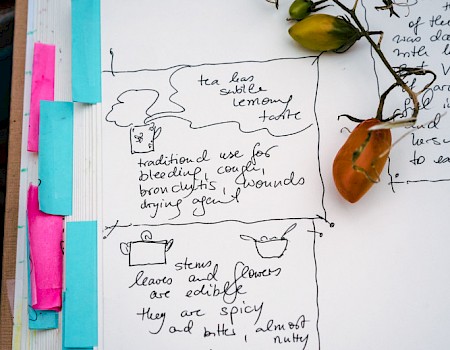 tea has
subtle
lemony
taste
traditional use for
bleeding, cough,
bronchitis, wounds
drying agent
stems
leaves and flowers
are edible
they are spicy
and bitter, almost
nutty
of the
was da
with l
and
hers
to ea